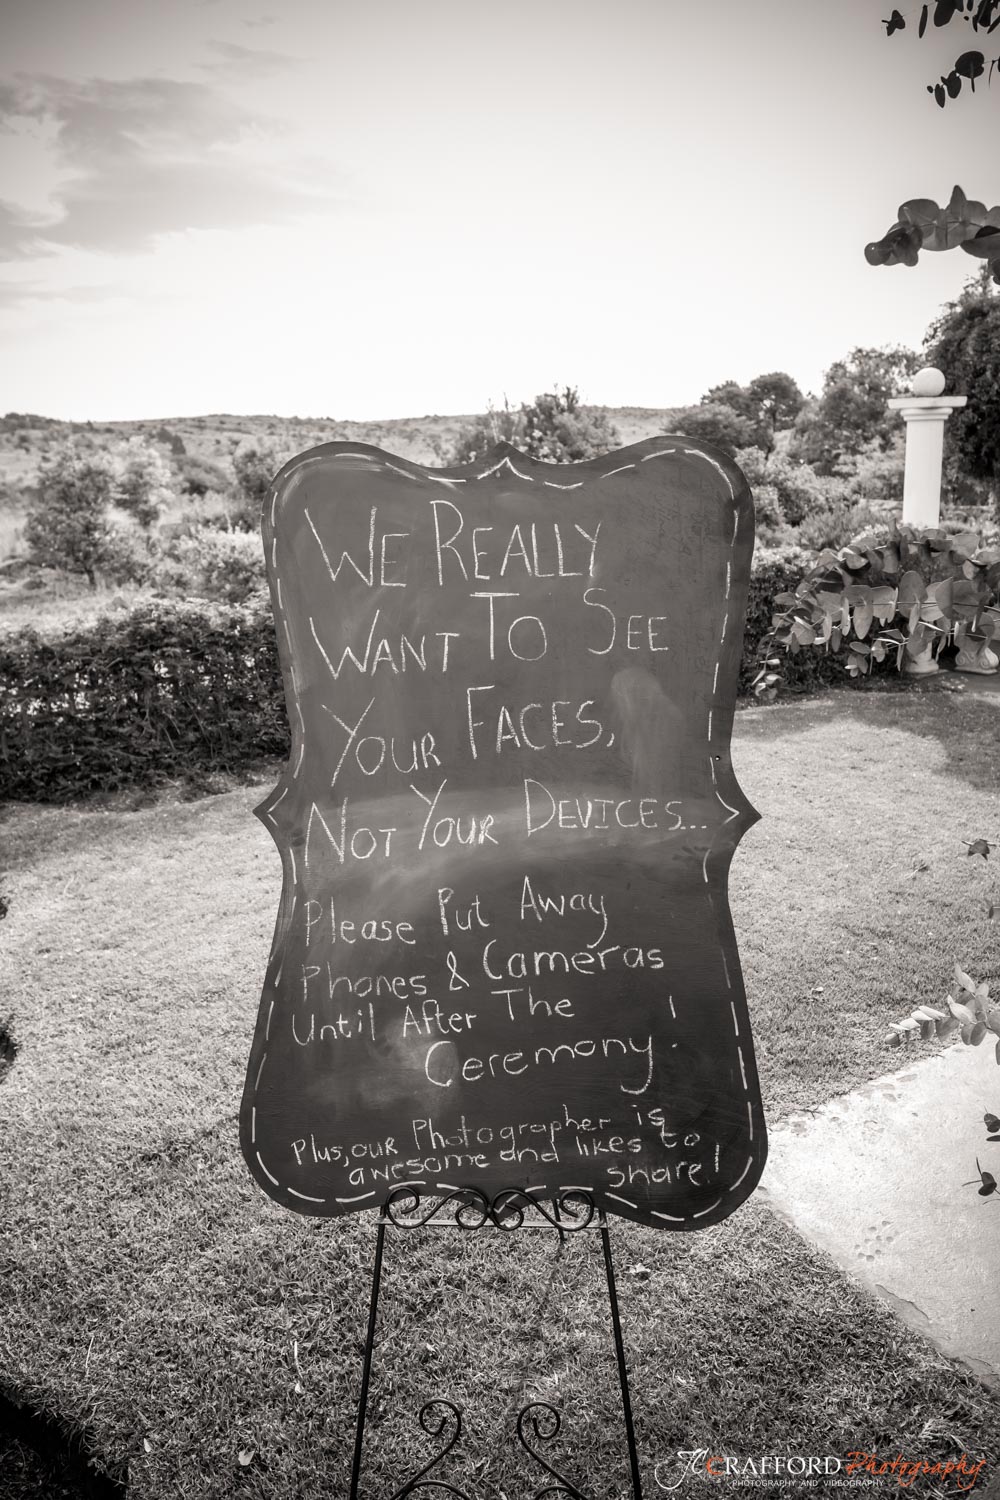 We Really
Want To See
Your Faces,
Not Your Devices...
Please Put Away
Phones & Cameras
Until After The
Ceremony!
Plus, our Photographer is
awesome and likes to
share!
JC CRAFFORD Photography
PHOTOGRAPHY AND VIDEOGRAPHY